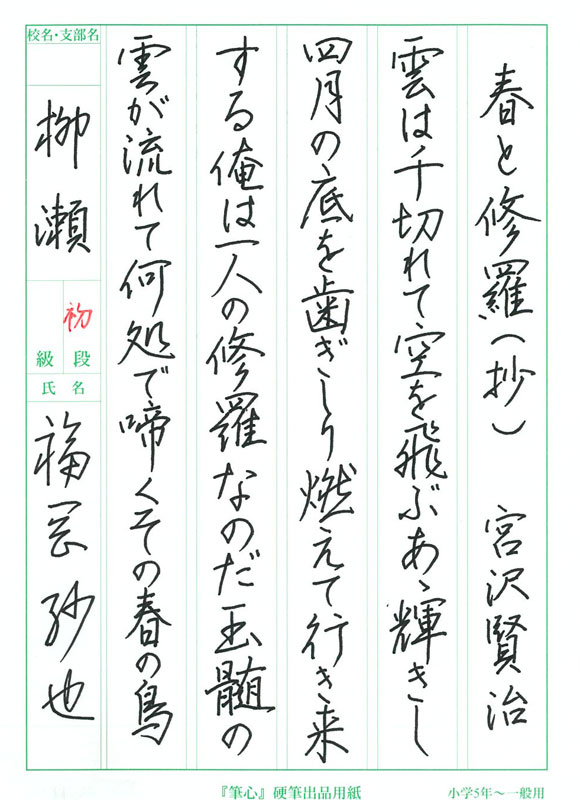 春と修羅(抄) 宮沢賢治
雲は千切れて空を飛ぶあゝ輝きし
四月の底を歯ぎしり燃えて行き来
する俺は一人の修羅なのだ玉髄の
雲が流れて何処で啼くその春の鳥
校名・支部名
柳瀬
初
段
級
氏名
福岡紗也
『筆心』硬筆出品用紙
小学5年〜一般用